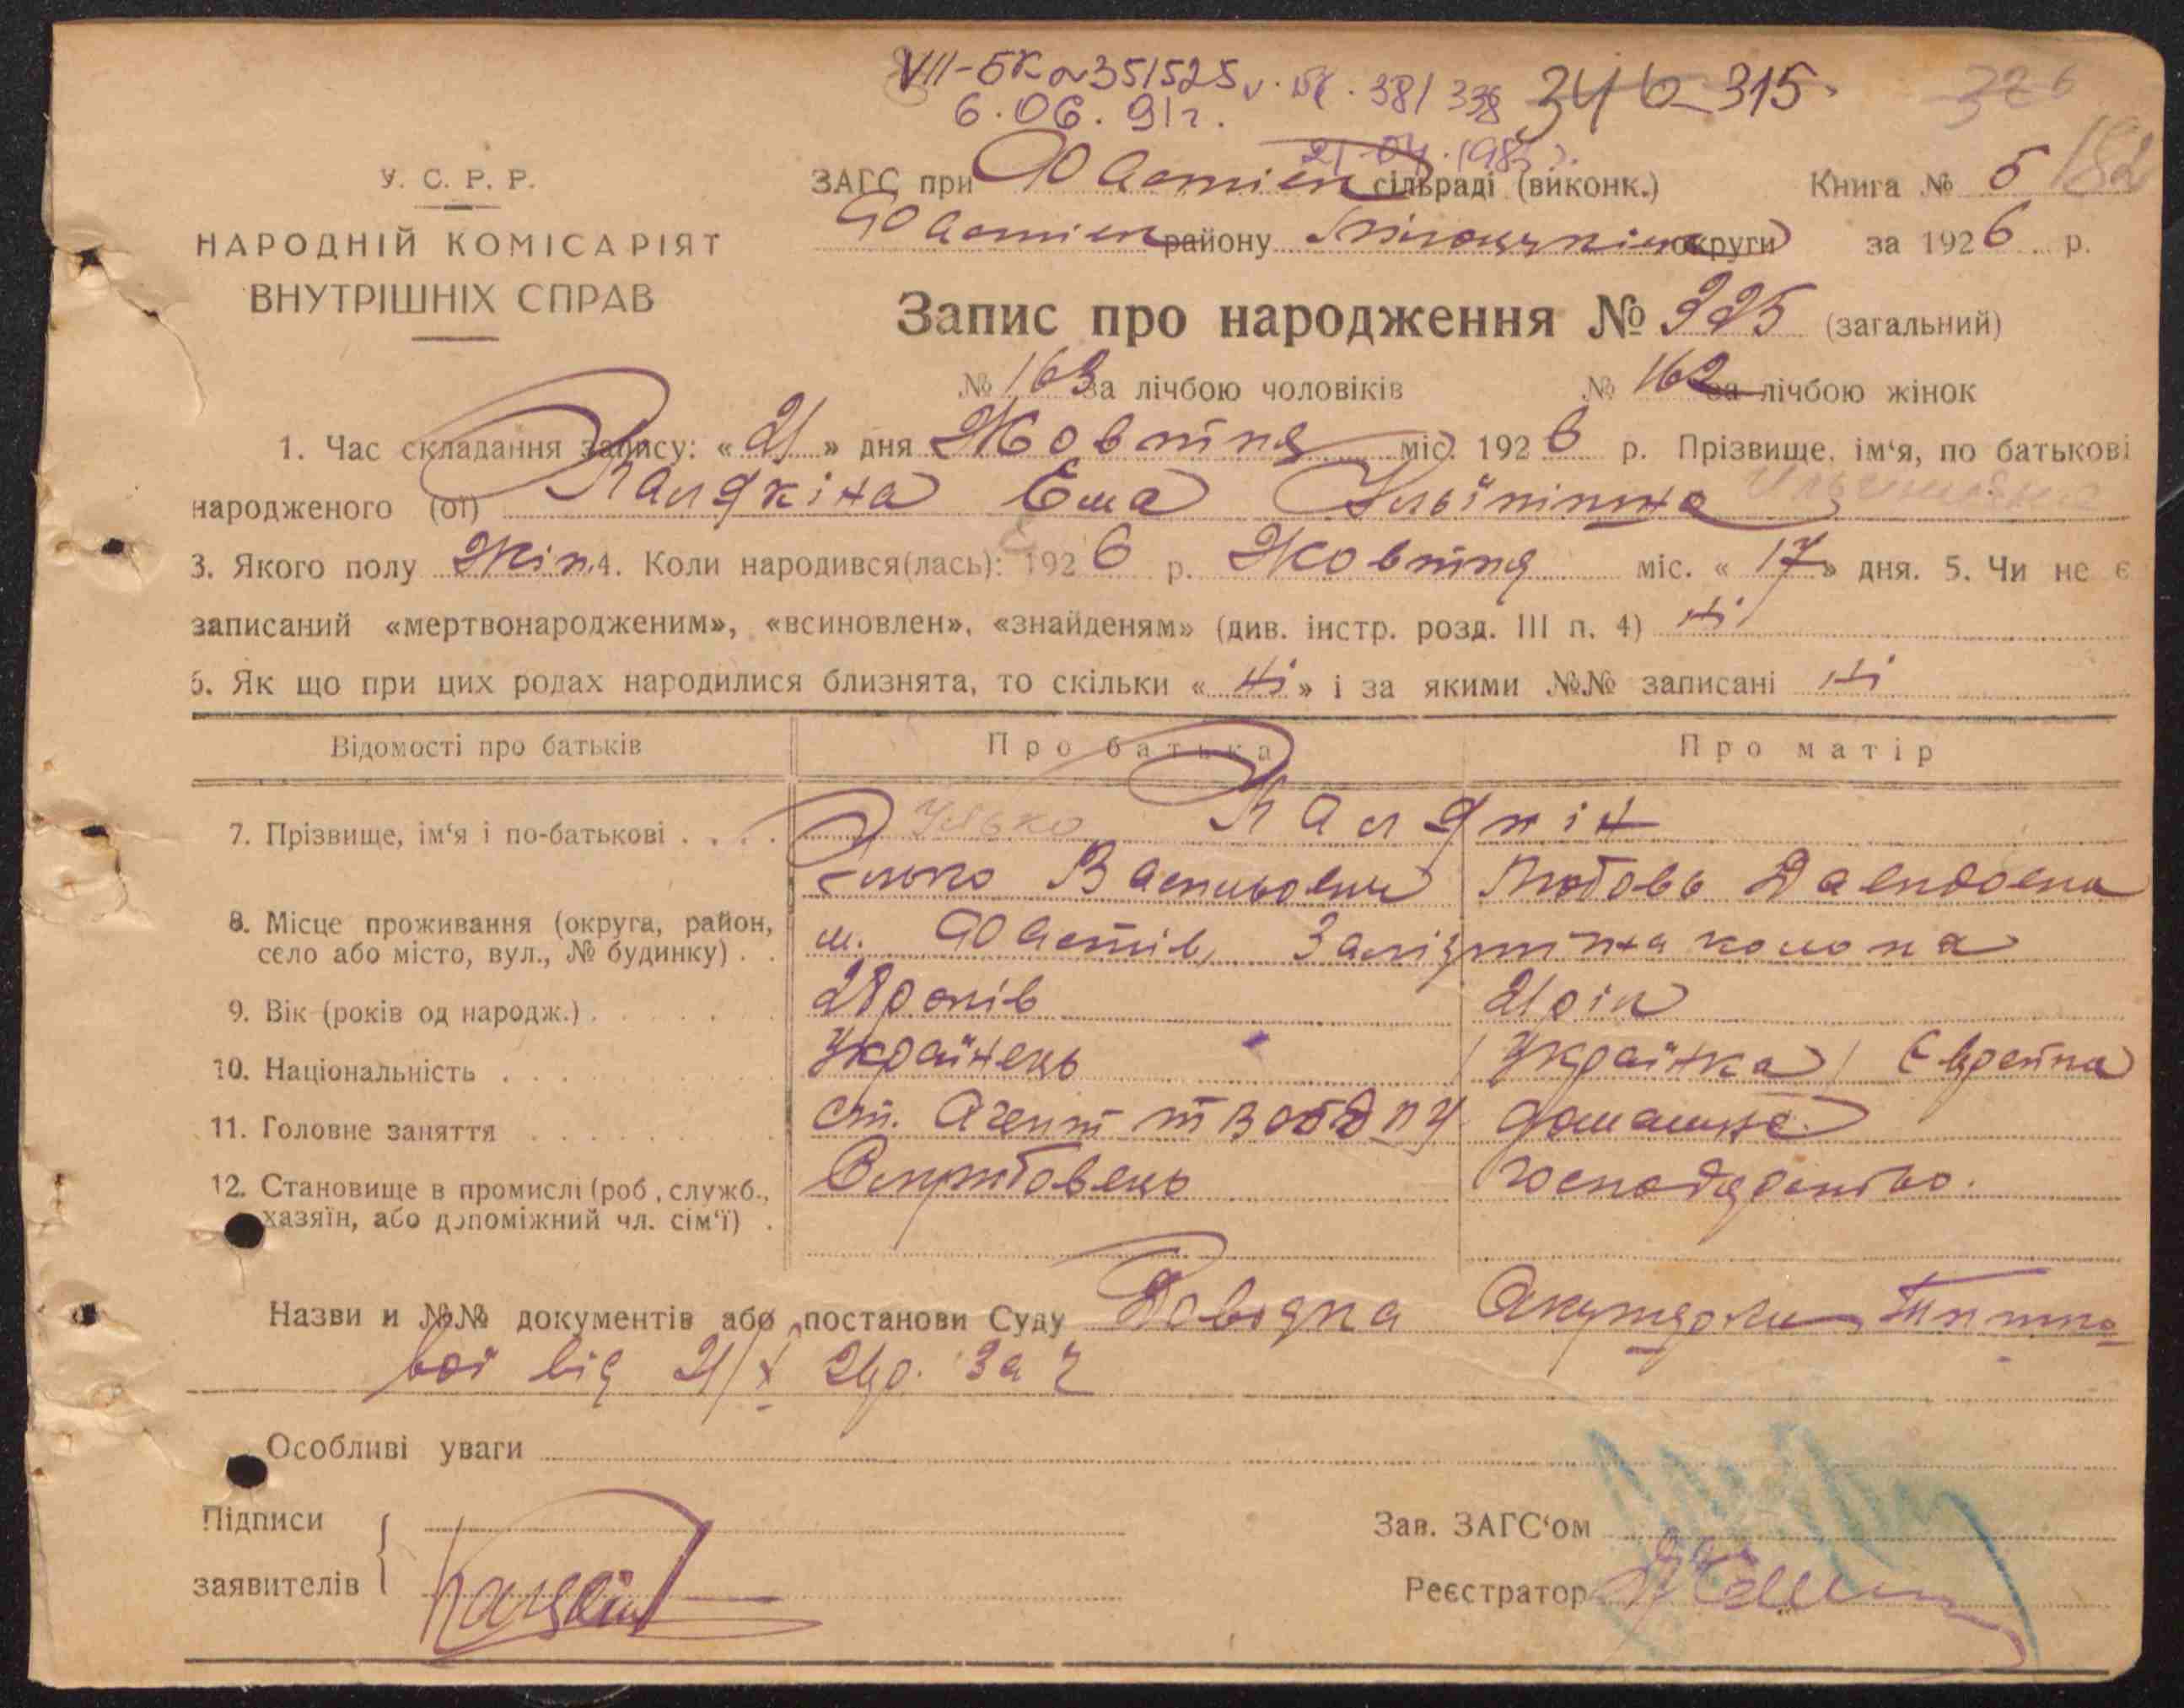 VII-БК №351525
6.06.91г.
381 338
346 315
326
182
У. С. Р. Р.
НАРОДНІЙ КОМІСАРІЯТ
ВНУТРІШНІХ СПРАВ
ЗАГС при Фастівськ сільраді (виконк.) Книга № 5
Фастівськ району округи за 1926 р.
Запис про народження № 325 (загальний)
№ 163 за лічбою чоловіків № 162 за лічбою жінок
1. Час складання запису: «21» дня Жовтня міс. 1926 р. Прізвище, ім‘я, по батькові
народженого (ої) Калядкіна Ема
3. Якого полу жін. 4. Коли народився(лась): 1926 р. Жовтня міс. «17» дня. 5. Чи не є
записаний «мертвонародженим», «всиновлен», «знайденям» (див. інстр. розд. III п. 4) ні
6. Як що при цих родах народилися близнята, то скільки «ні» і за якими №№ записані ні
Відомості про батьків Про батька Про матір
7. Прізвище, ім‘я і по-батькові . . . . Улько
Васильович Любовь Давидовна
8. Місце проживання (округа, район,
село або місто, вул., № будинку) . . м. Фастів, Залізнична колона
9. Вік (років од народж.) . . . . . 28 років 21 рік
10. Національність . . . . Українець Українка / Еврейка
11. Головне заняття . . . . ст. Агент домашнє
12. Становище в промислі (роб., служб.,
хазяїн, або допоміжний чл. сім‘ї) . Службовець господарство.
Назви и №№ документів або постанови Суду Довідка Акушерки
вої від 21/X 26р. за
Особливі уваги
Підписи
заявителів
Зав. ЗАГС‘ом
Реєстратор